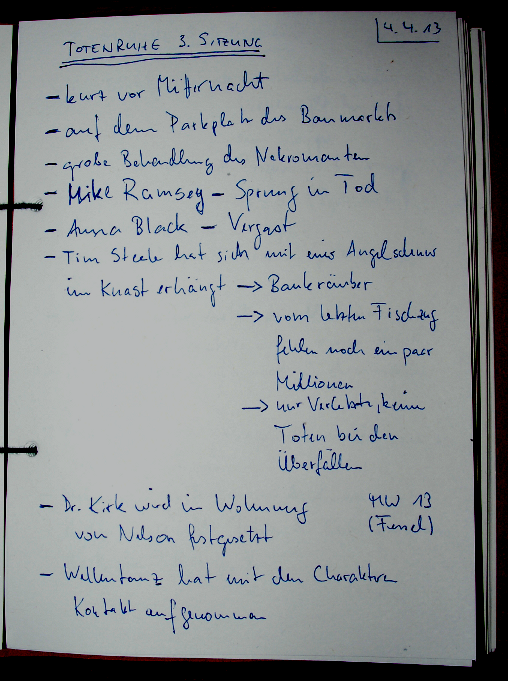 4.4.13
TOTENRUHE 3. SITZUNG
- kurz vor Mitternacht
- auf dem Parkplatz des Baumarkts
- große Behandlung des Nekromanten
- Mike Ramsey - Sprung in Tod
- Anna Black - Vergast
- Tim Steele hat sich mit einer Angelschnur
im Knast erhängt -> Bankräuber
-> vom letzten Fischzug
fehlen noch ein paar
Millionen
-> nur Verletzte, keine
Toten bei den
Überfällen
- Dr. Kirk wird in Wohnung MW 13
von Nelson festgesetzt (Fessel)
- Wellentanz hat mit den Charakteren
Kontakt aufgenommen